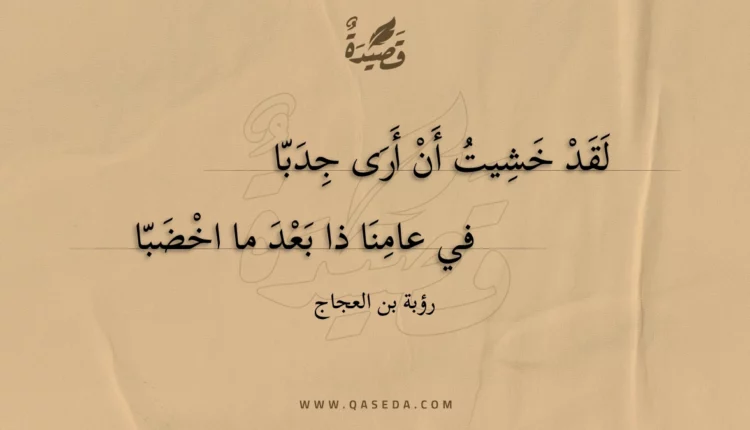 قَصِيْدَةٌ
لَقَدْ خَشِيتُ أَنْ أَرَى جِدَبّا
في عامِنَا ذا بَعْدَ ما اخْضَبّا
رؤبة بن العجاج
WWW.QASEDA.COM